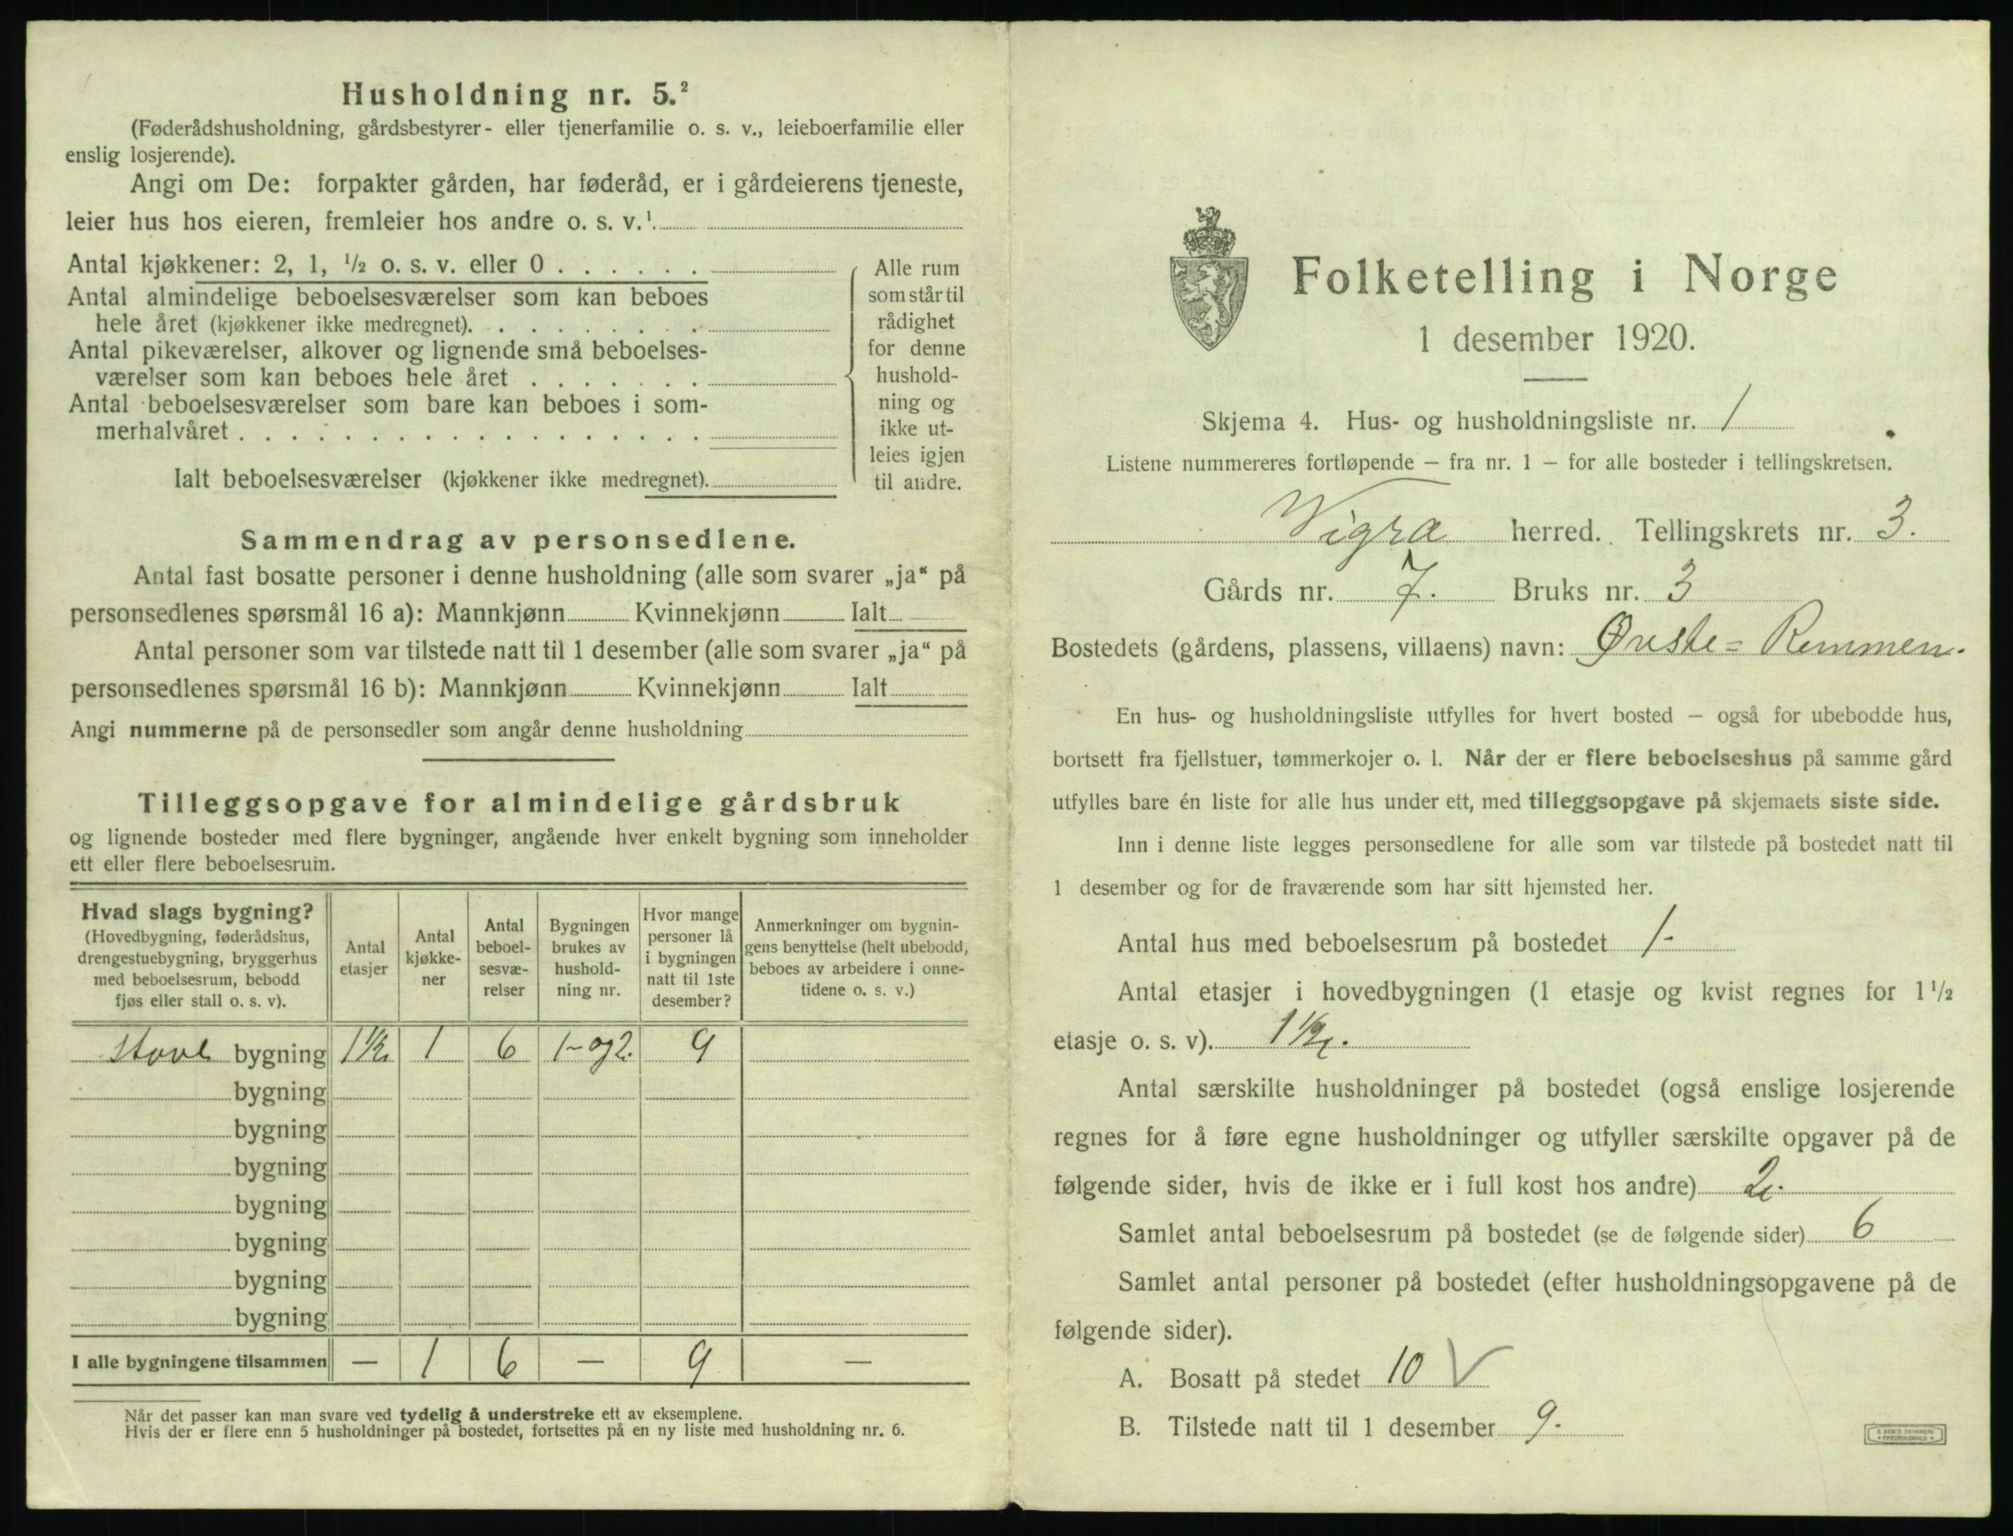 Husholdning nr. 5.²
(Føderådshusholdning, gårdsbestyrer- eller tjenerfamilie o. s. v., leieboerfamilie eller
enslig losjerende).
Angi om De: forpakter gården, har føderåd, er i gårdeierens tjeneste,
leier hus hos eieren, fremleier hos andre o. s. v.¹
Antal kjøkkener: 2, 1, ½ o. s. v. eller 0 . . . . . .
Antal almindelige beboelsesværelser som kan beboes
hele året (kjøkkener ikke medregnet). . . . . . . . . .
Antal pikeværelser, alkover og lignende små beboelses-
værelser som kan beboes hele året . . . . . . .
Antal beboelsesværelser som bare kan beboes i som-
merhalvåret . . . . . . . . . . . . . . . . . .
Ialt beboelsesværelser (kjøkkener ikke medregnet).
Alle rum
som står til
rådighet
for denne
hushold-
ning og
ikke ut-
leies igjen
til andre.
Sammendrag av personsedlene.
Antal fast bosatte personer i denne husholdning (alle som svarer „ja“ på
personsedlenes spørsmål 16 a): Mannkjønn Kvinnekjønn Ialt
Antal personer som var tilstede natt til 1 desember (alle som svarer „ja“ på
personsedlenes spørsmål 16 b): Mannkjønn Kvinnekjønn Ialt
Angi nummerne på de personsedler som angår denne husholdning
Tilleggsopgave for almindelige gårdsbruk
og lignende bosteder med flere bygninger, angående hver enkelt bygning som inneholder
ett eller flere beboelsesrum.
Hvad slags bygning?
(Hovedbygning, føderådshus,
drengestuebygning, bryggerhus
med beboelsesrum, bebodd
fjøs eller stall o. s. v).
Antal
etasjer
Antal
kjøkke-
ner
Antal
beboel-
sesvæ-
relser
Bygningen
brukes av
hushold-
ning nr.
Hvor mange
personer lå
i bygningen
natt til 1ste
desember?
Anmerkninger om bygnin-
gens benyttelse (helt ubebodd,
beboes av arbeidere i onne-
tidene o. s. v.)
bygning 1½ 1 6 1- og 2. 9
bygning
bygning
bygning
bygning
bygning
bygning
bygning
I alle bygningene tilsammen — 1 6 — 9 —
Når det passer kan man svare ved tydelig å understreke ett av eksemplene.
Hvis der er flere enn 5 husholdninger på bostedet, fortsettes på en ny liste med husholdning nr. 6.
Folketelling i Norge
1 desember 1920.
Skjema 4. Hus- og husholdningsliste nr. 1
Listene nummereres fortløpende — fra nr. 1 — for alle bosteder i tellingskretsen.
Vigra herred. Tellingskrets nr. 3.
Gårds nr. 7. Bruks nr. 3
Bostedets (gårdens, plassens, villaens) navn: Øvste= Remmen.
En hus- og husholdningsliste utfylles for hvert bosted — også for ubebodde hus,
bortsett fra fjellstuer, tømmerkojer o. l. Når der er flere beboelseshus på samme gård
utfylles bare én liste for alle hus under ett, med tilleggsopgave på skjemaets siste side.
Inn i denne liste legges personsedlene for alle som var tilstede på bostedet natt til
1 desember og for de fraværende som har sitt hjemsted her.
Antal hus med beboelsesrum på bostedet 1-
Antal etasjer i hovedbygningen (1 etasje og kvist regnes for 1½
etasje o. s. v). 1½.
Antal særskilte husholdninger på bostedet (også enslige losjerende
regnes for å føre egne husholdninger og utfyller særskilte opgaver på de
følgende sider, hvis de ikke er i full kost hos andre) 2.
Samlet antal beboelsesrum på bostedet (se de følgende sider) 6
Samlet antal personer på bostedet (efter husholdningsopgavene på de
følgende sider).
A. Bosatt på stedet 10 V
B. Tilstede natt til 1 desember 9.